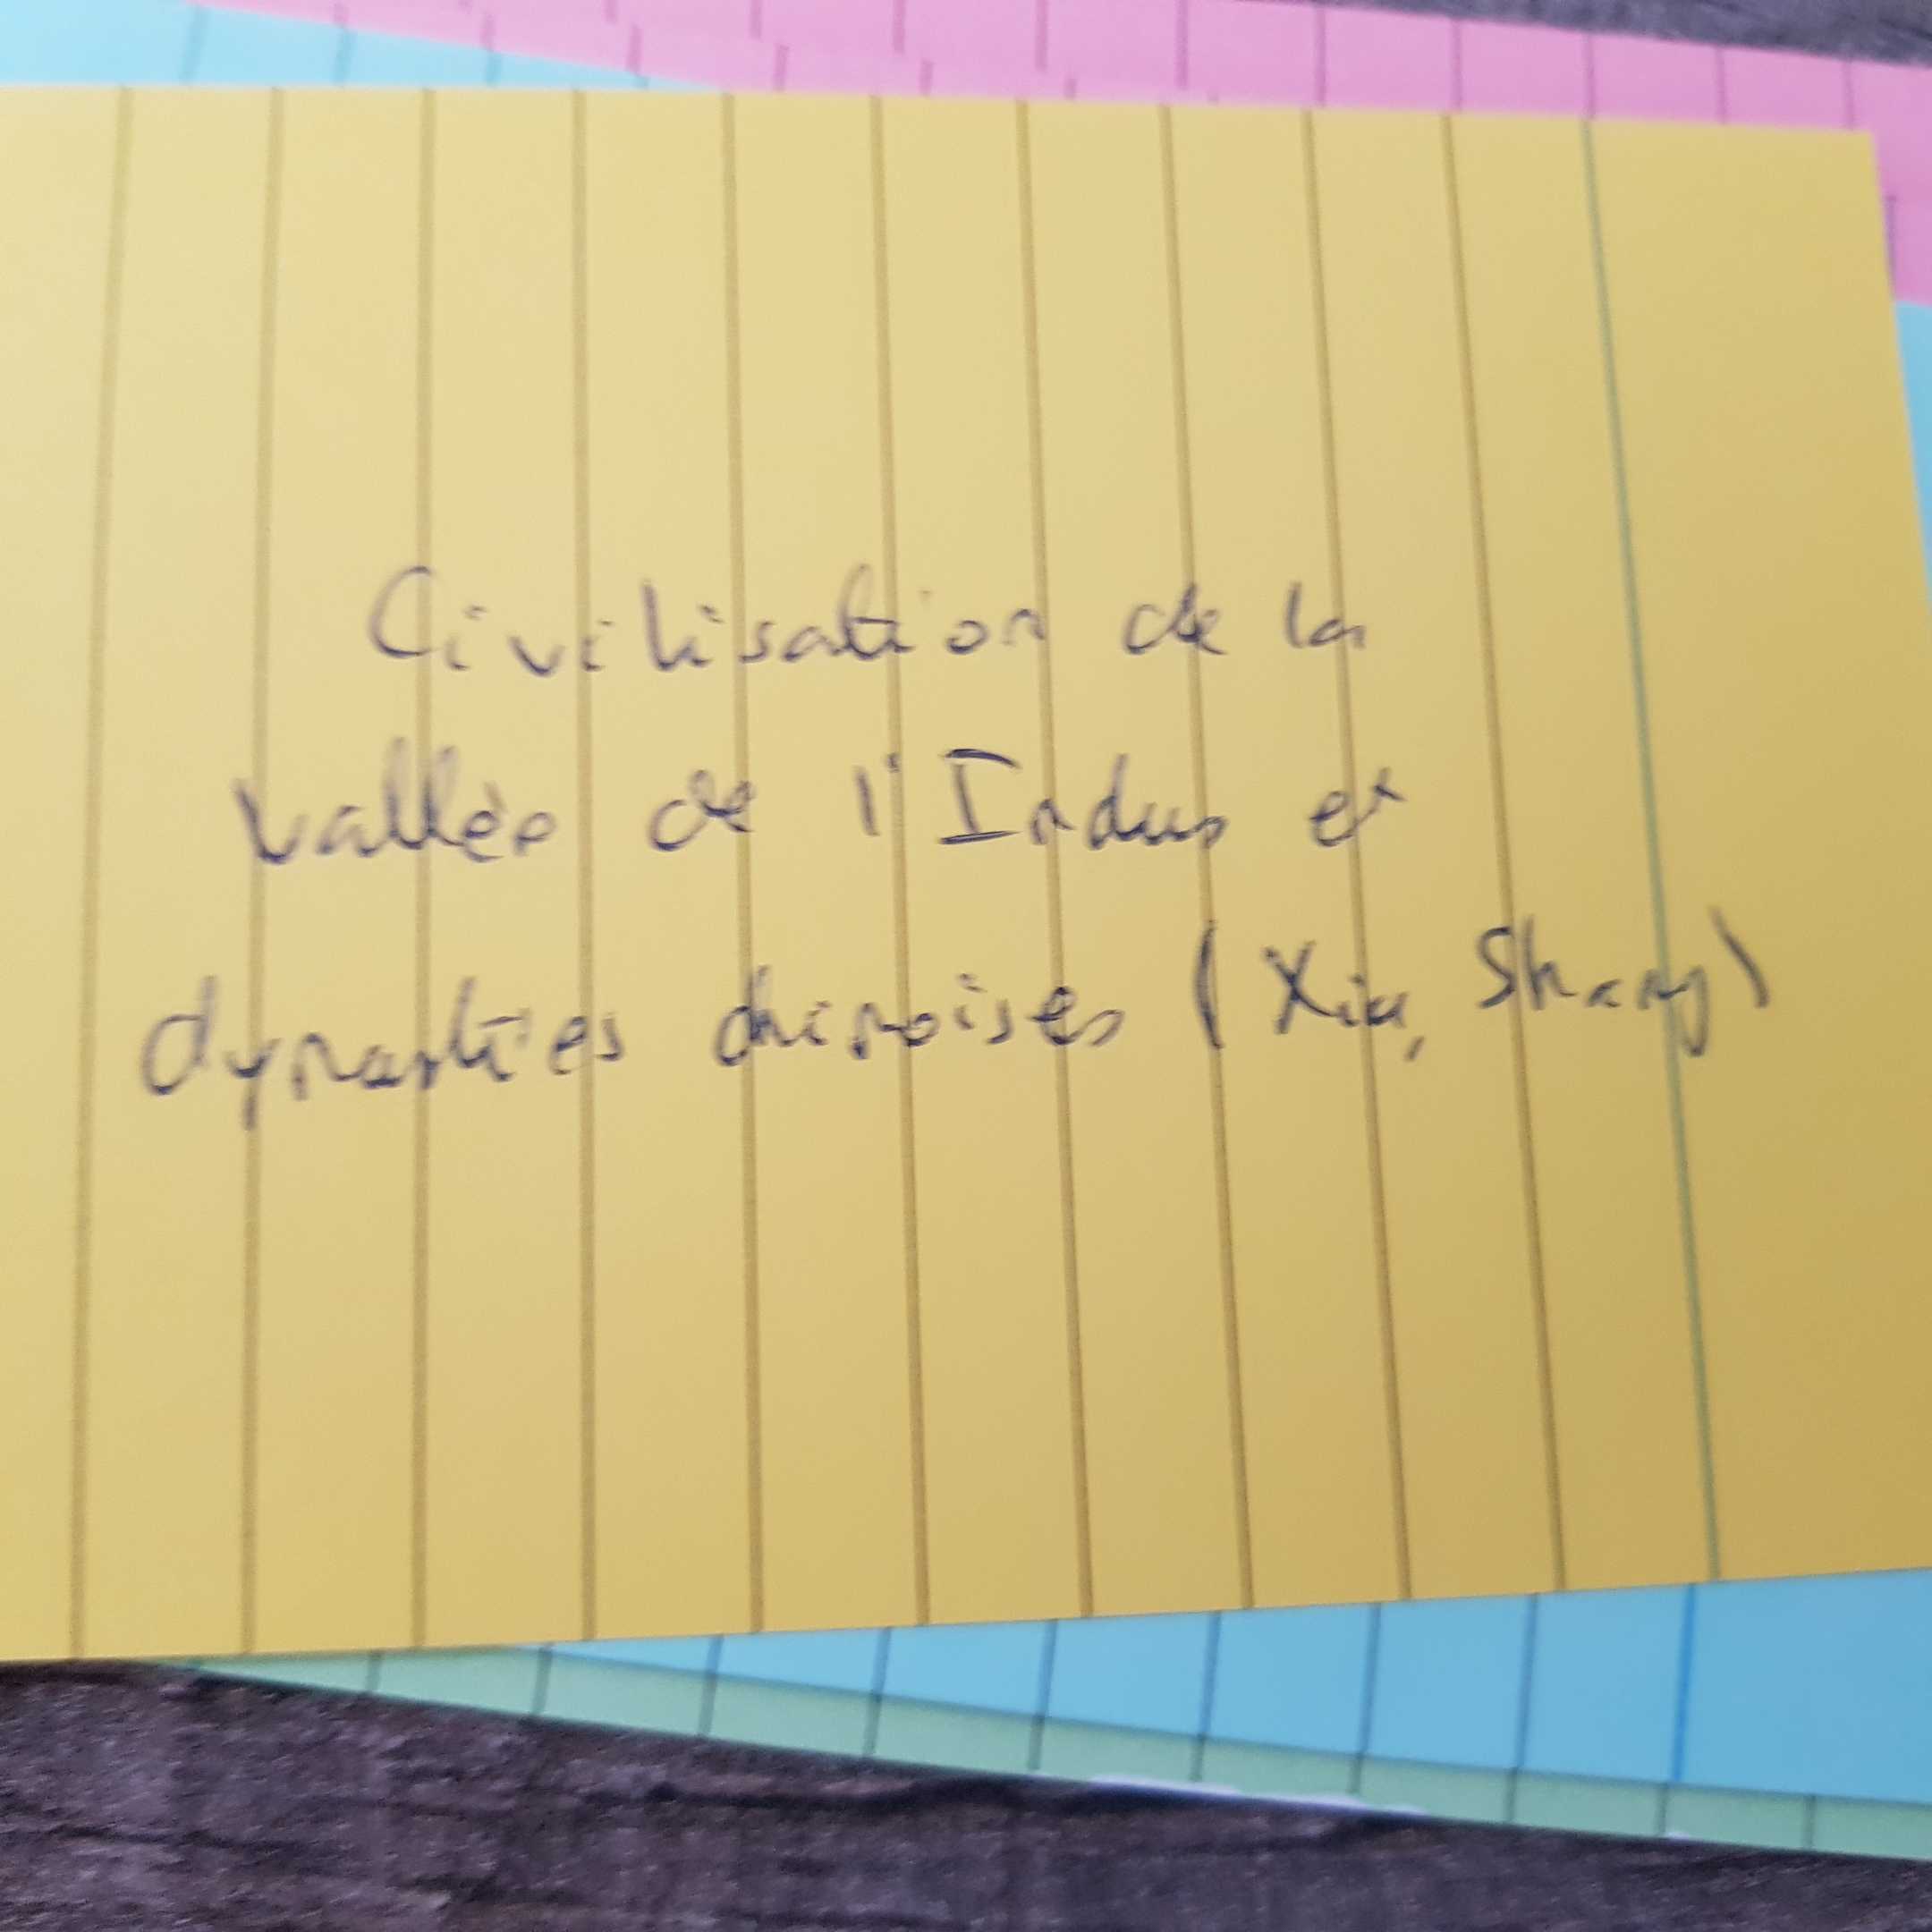 Civilisation de la
vallée de l'Indus et
dynasties chinoises (Xia, Shang)